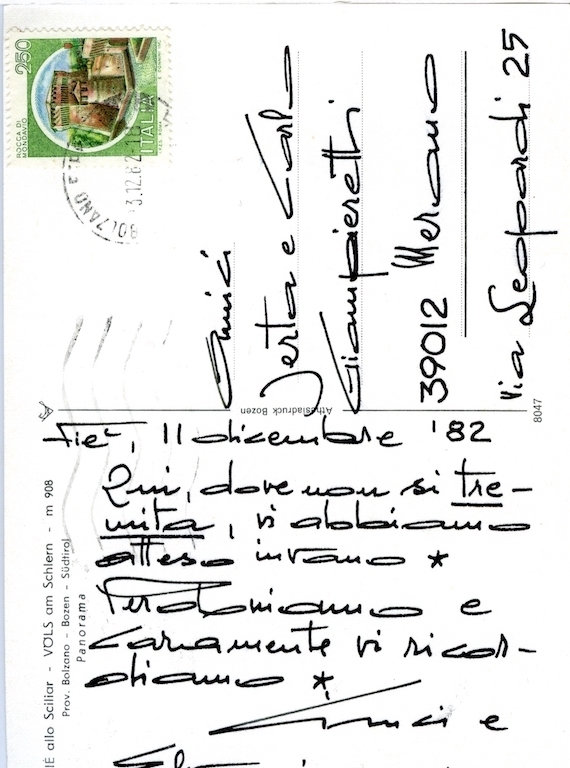 Fiè, 11 dicembre '82
Qui, dove non si tre-
mita, vi abbiamo
atteso invano *
Perdoniamo e
caramente vi ricor-
diamo *
e
Amici
Berta e Carlo
Giampieretti
39012 Merano
Via Leopardi 25
250
ROCCA DI
MONDAVIO
ITALIA
BOLZANO
13.12.82
Athesiadruck Bozen
8047
IÈ allo Sciliar - VÖLS am Schlern - m 908
Prov. Bolzano - Bozen - Südtirol
Panorama